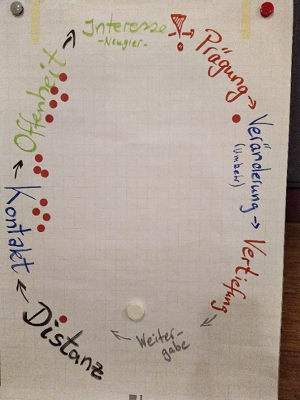 Interesse
-Neugier-
Prägung
Veränderung
(Umkehr)
Vertiefung
Weiter-
gabe
Distanz
Kontakt
Offenheit